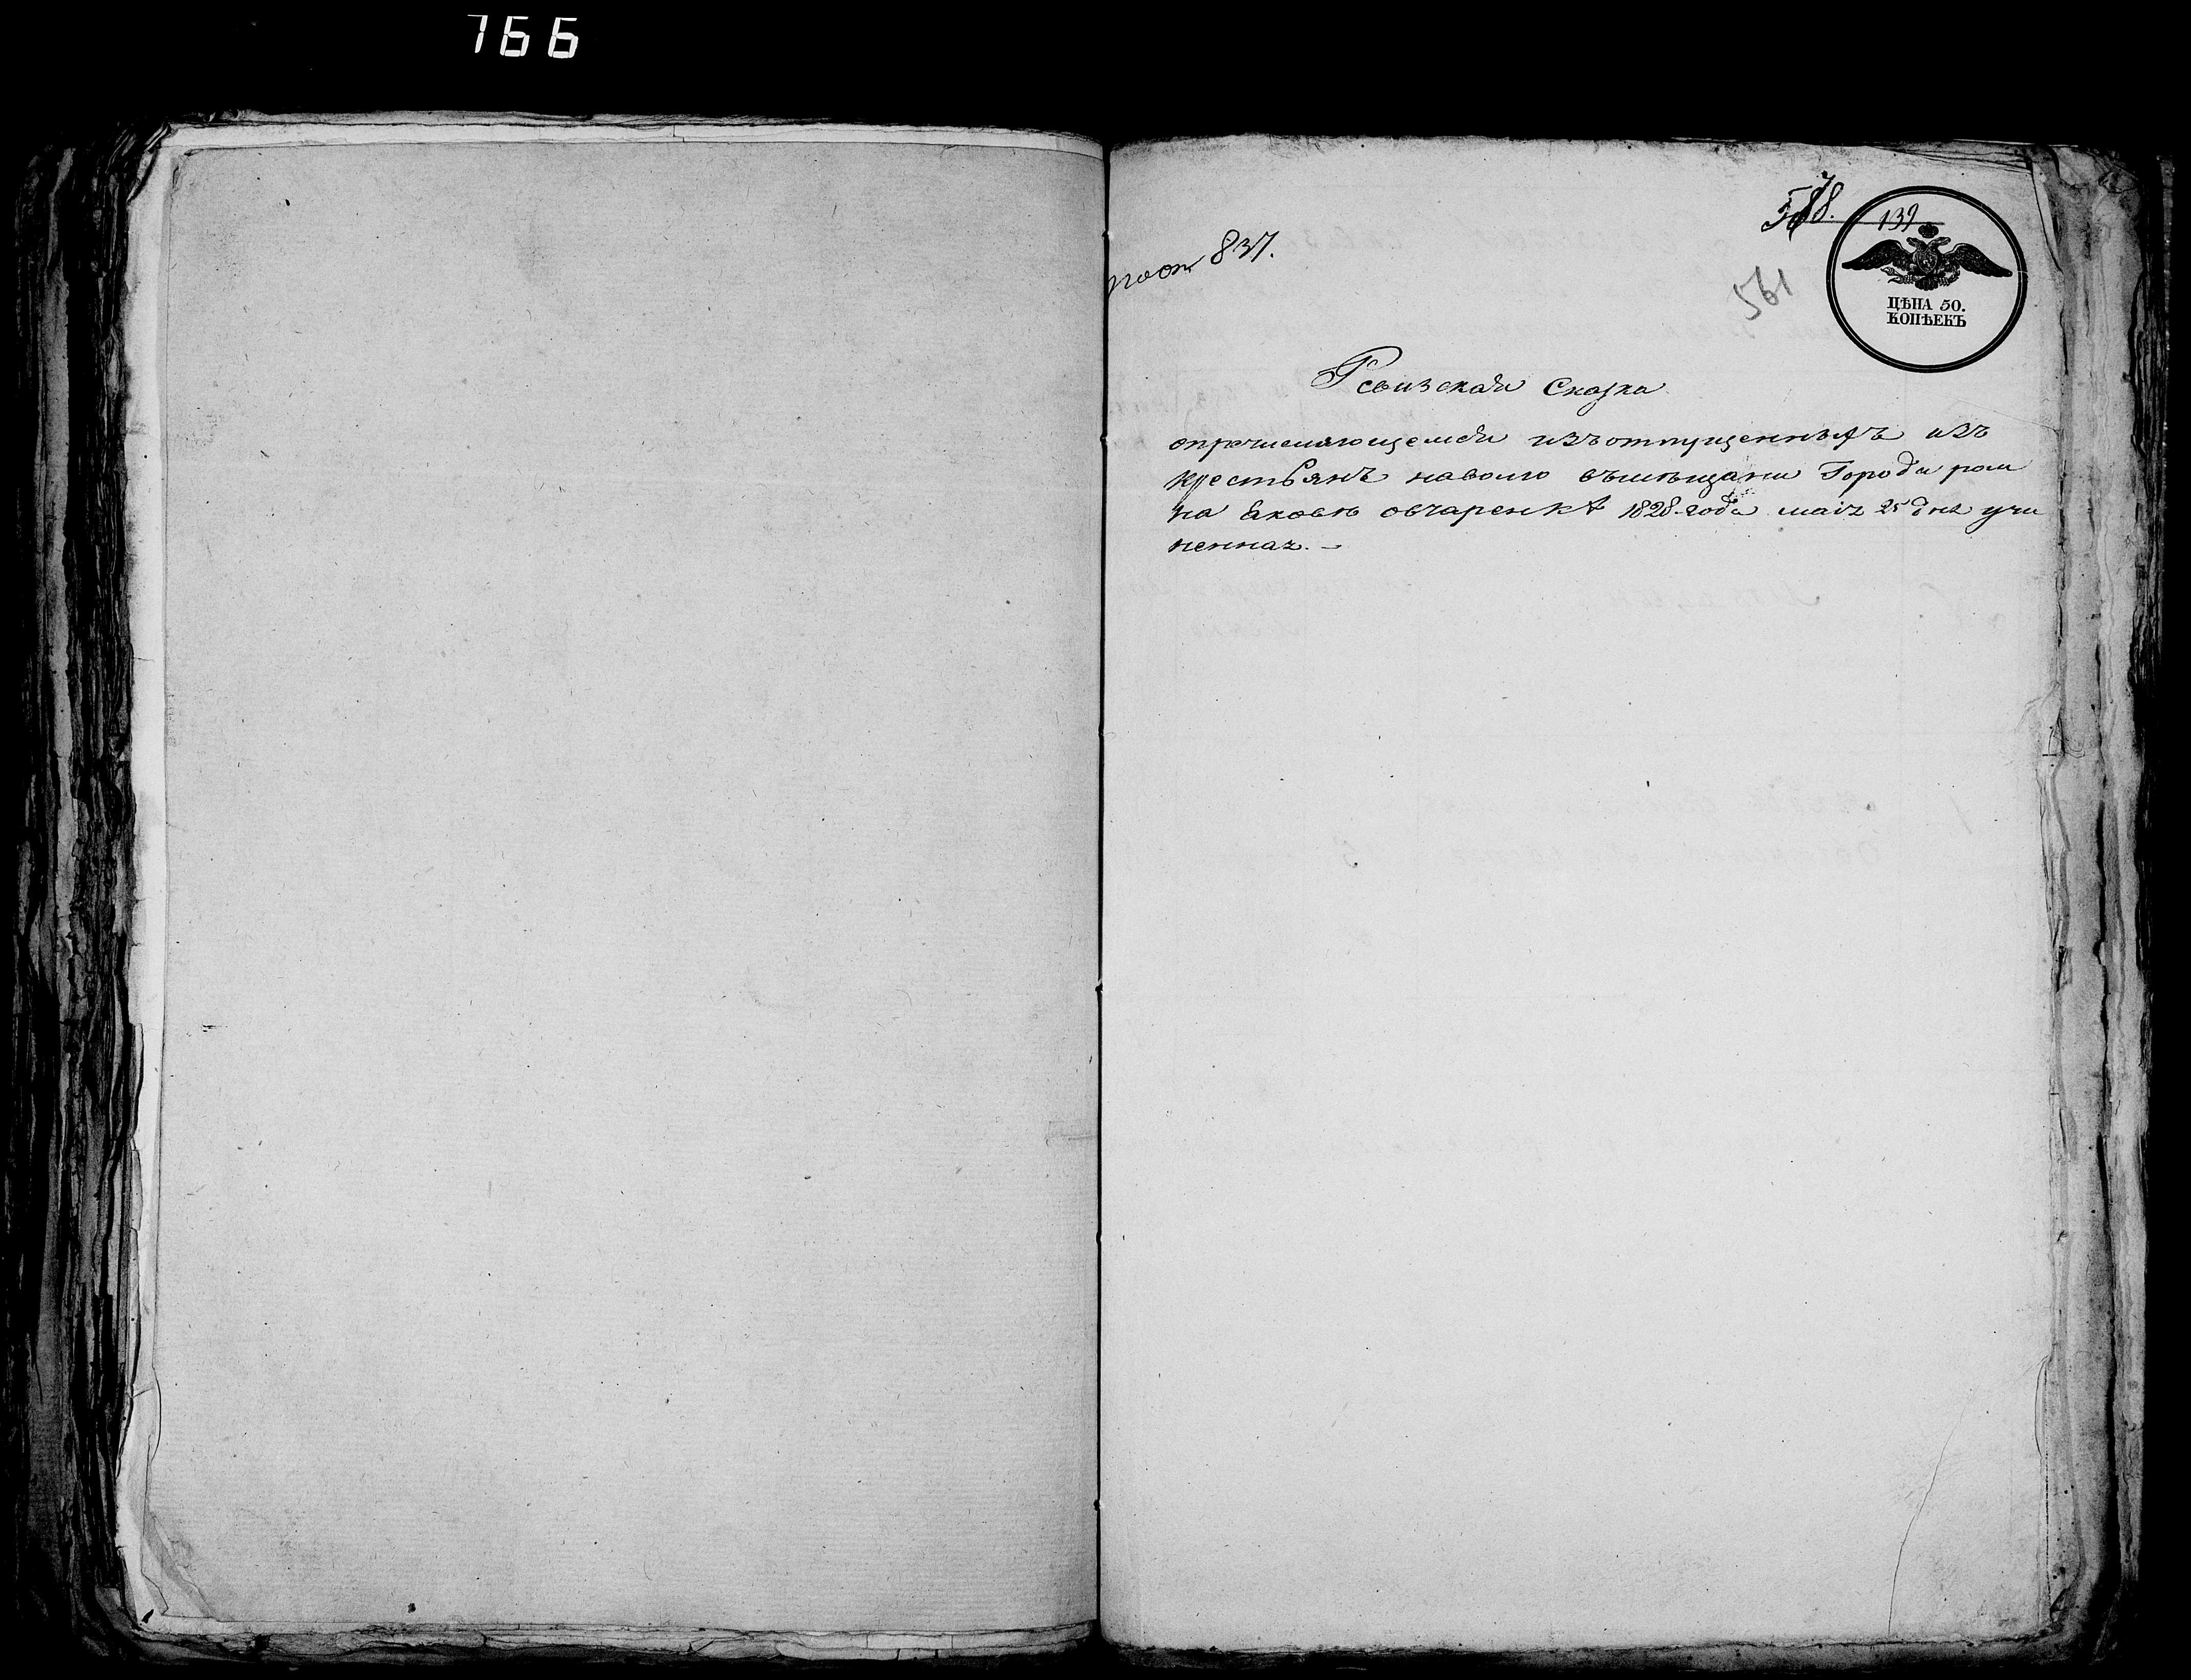 166
837.
139
561
ЦѢНА 50.
КОПѢЕКЪ
Ревизская Сказка
опричисляющемся изъотпущенныхъ изъ
крестьянъ наволю въмѣщани Города ром
на Яковѣ овчаренкѣ 1828. года маія 25 дня учи
ненная. –